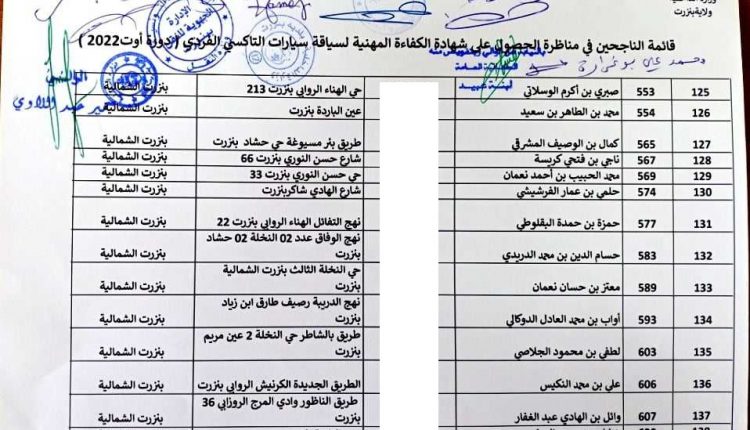 ولاية بنزرت
قائمة الناجحين في مناظرة الحصول على شهادة الكفاءة المهنية لسياقة سيارات التاكسي الفردي (دورة أوت2022 )
125 553 صبري بن أكرم الوسلاتي حي الهناء الروابي بنزرت 213 بنزرت الشمالية
126 554 محمد بن الطاهر بن سعيد عين الباردة بنزرت بنزرت الشمالية
127 565 كمال بن الوصيف المشرقي طريق بئر مسيوغة حي حشاد بنزرت بنزرت الشمالية
128 567 ناجي بن فتحي كريسة شارع حسن النوري بنزرت 66 بنزرت الشمالية
129 569 محمد الحبيب بن أحمد نعمان حي حسن النوري بنزرت 33 بنزرت الشمالية
130 574 حلمي بن عمار الفرشيشي شارع الهادي شاكربنزرت بنزرت الشمالية
131 577 حمزة بن حمدة البقلوطي نهج التفائل الهناء الروابي بنزرت 22 بنزرت الشمالية
132 583 حسام الدين بن محمد الدريدي نهج الوفاق عدد 02 النخلة 02 حشاد
بنزرت بنزرت الشمالية
133 589 معتز بن حسان نعمان حي النخلة الثالث بنزرت الشمالية
بنزرت بنزرت الشمالية
134 593 أواب بن محمد العادل الدوكالي نهج الدريبة رصيف طارق ابن زياد
بنزرت بنزرت الشمالية
135 603 لطفي بن محمود الجلاصي طريق بالشاطر حي النخلة 2 عين مريم
بنزرت بنزرت الشمالية
136 606 علي بن محمد النكيس الطريق الجديدة الكرنيش الروابي بنزرت بنزرت الشمالية
137 607 وائل بن الهادي عبد الغفار طريق الناظور وادي المرج الروزابي 36
بنزرت بنزرت الشمالية